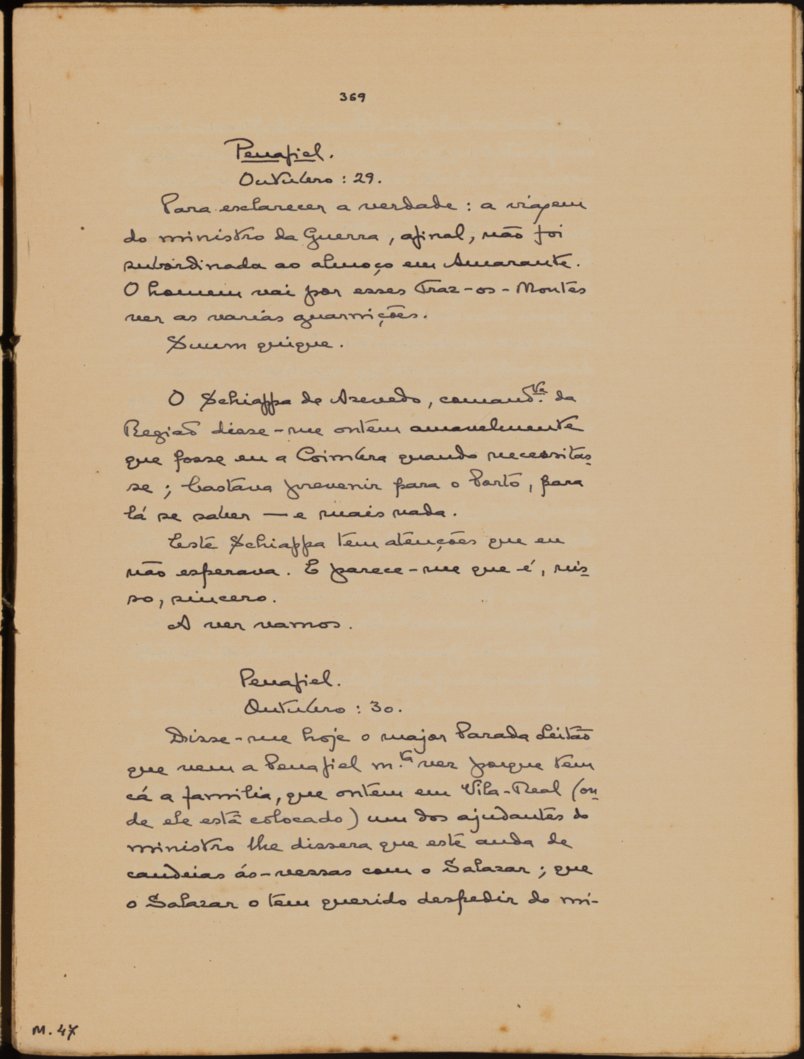 369
Penafiel.
Outubro : 29.
Para esclarecer a verdade : a viagem
do ministro da Guerra, afinal, não foi
subordinada ao almoço em Amarante.
O homem vai por esses Traz-os-Montes
ver as varias guarnições.
Suum quique.
O Schiappa de Azevedo, comand.te da
Região disse-me ontem amavelmente
que fosse eu a Coimbra quando necessitas-
se ; bastava prevenir para o Porto, para
lá se saber — e mais nada.
Este Schiappa tem atenções que eu
não esperava. E parece-me que é, nis-
so, sincero.
A ver vamos.
Penafiel.
Outubro : 30.
Disse-me hoje o major Parada Leitão
que vem a Penafiel m.ta vez porque tem
cá a familia, que ontem em Vila-Real (on-
de ele está colocado) um dos ajudantes do
ministro lhe dissera que este anda de
candeias ás-vessas com o Salazar ; que
o Salazar o tem querido despedir do mi-
M. 47